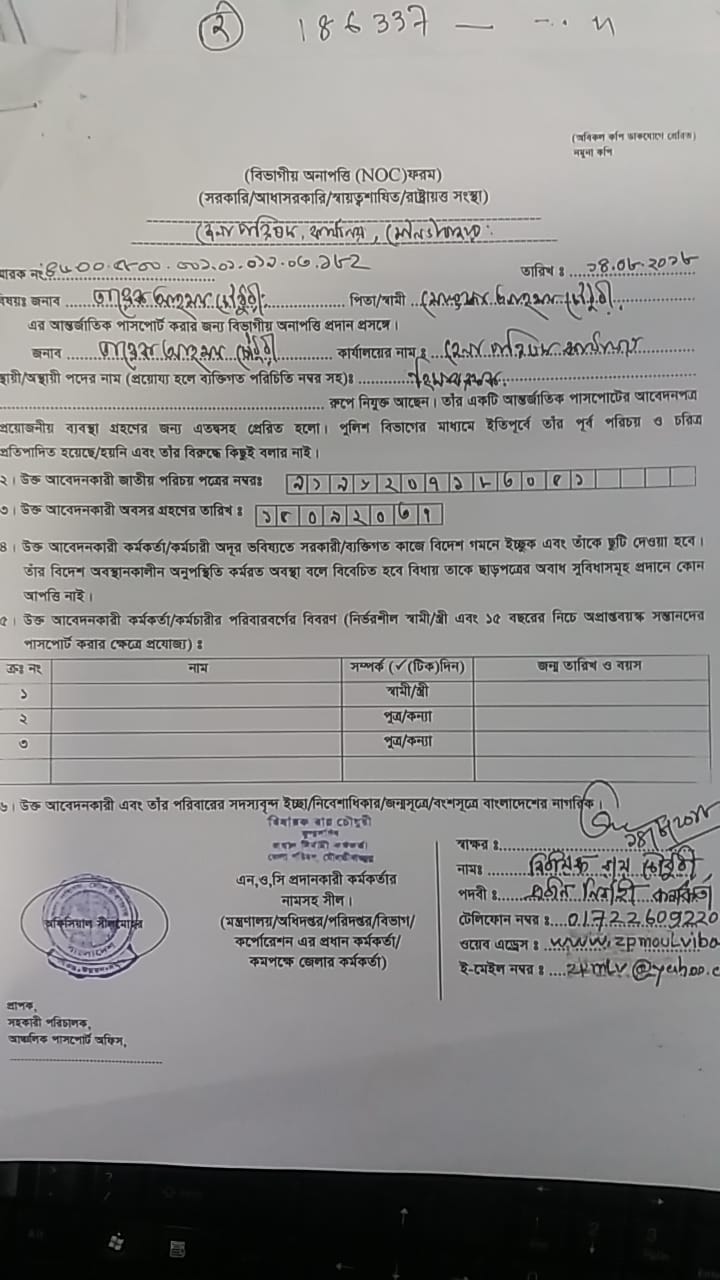 ২ 186337 —
(অবিকল কপি ডাকযোগে প্রেরিত)
নমুনা কপি
(বিভাগীয় অনাপত্তি (NOC)ফরম)
(সরকারি/আধাসরকারি/স্বায়ত্বশাসিত/রাষ্ট্রায়ত্ত সংস্থা)
জেলা পরিষদ, কার্যালয়, মৌলভীবাজার
স্মারক নং তারিখ ঃ
বিষয়ঃ জনাব চৌধুরী পিতা/স্বামী আহমদ চৌধুরী
এর আন্তর্জাতিক পাসপোর্ট করার জন্য বিভাগীয় অনাপত্তি প্রদান প্রসঙ্গে।
জনাব চৌধুরী কার্যালয়ের নাম ঃ জেলা পরিষদ কার্যালয়
স্থায়ী/অস্থায়ী পদের নাম (প্রযোজ্য হলে ব্যক্তিগত পরিচিতি নম্বর সহ)ঃ
রূপে নিযুক্ত আছেন। তাঁর একটি আন্তর্জাতিক পাসপোর্টের আবেদনপত্র
প্রয়োজনীয় ব্যবস্থা গ্রহণের জন্য এতদসহ প্রেরিত হলো। পুলিশ বিভাগের মাধ্যমে ইতিপূর্বে তাঁর পূর্ব পরিচয় ও চরিত্র
প্রতিপাদিত হয়েছে/হয়নি এবং তাঁর বিরুদ্ধে কিছুই বলার নাই।
২। উক্ত আবেদনকারী জাতীয় পরিচয় পত্রের নম্বরঃ
৩। উক্ত আবেদনকারী অবসর গ্রহণের তারিখ ঃ
৪। উক্ত আবেদনকারী কর্মকর্তা/কর্মচারী অদূর ভবিষ্যতে সরকারী/ব্যক্তিগত কাজে বিদেশ গমনে ইচ্ছুক এবং তাঁকে ছুটি দেওয়া হবে।
তাঁর বিদেশ অবস্থানকালীন অনুপস্থিতি কর্মরত অবস্থা বলে বিবেচিত হবে বিধায় তাকে ছাড়পত্রের অবাধ সুবিধাসমূহ প্রদানে কোন
আপত্তি নাই।
৫। উক্ত আবেদনকারী কর্মকর্তা/কর্মচারীর পরিবারবর্গের বিবরণ (নির্ভরশীল স্বামী/স্ত্রী এবং ১৫ বছরের নিচে অপ্রাপ্তবয়স্ক সন্তানদের
পাসপোর্ট করার ক্ষেত্রে প্রযোজ্য) ঃ
ক্রঃ নং নাম সম্পর্ক (✓(টিক)দিন) জন্ম তারিখ ও বয়স
১ স্বামী/স্ত্রী
২ পুত্র/কন্যা
৩ পুত্র/কন্যা
৬। উক্ত আবেদনকারী এবং তাঁর পরিবারের সদস্যবৃন্দ ইচ্ছা/নিবেশাধিকার/জন্মসূত্রে/বংশসূত্রে বাংলাদেশের নাগরিক।
বিনায়ক রায় চৌধুরী
প্রধান নির্বাহী কর্মকর্তা
জেলা পরিষদ, মৌলভীবাজার
এন,ও,সি প্রদানকারী কর্মকর্তার
নামসহ সীল।
(মন্ত্রণালয়/অধিদপ্তর/পরিদপ্তর/বিভাগ/
কর্পোরেশন এর প্রধান কর্মকর্তা/
কমপক্ষে জেলার কর্মকর্তা)
অফিসিয়াল সীলমোহর
স্বাক্ষর ঃ
নামঃ বিনায়ক রায় চৌধুরী
পদবী ঃ প্রধান নির্বাহী কর্মকর্তা
টেলিফোন নম্বর ঃ 01722609220
ওয়েব এড্রেস ঃ www.zpmoulviba
ই-মেইল নম্বর ঃ zpmlv@yahoo.c
প্রাপক,
সহকারী পরিচালক,
আঞ্চলিক পাসপোর্ট অফিস,